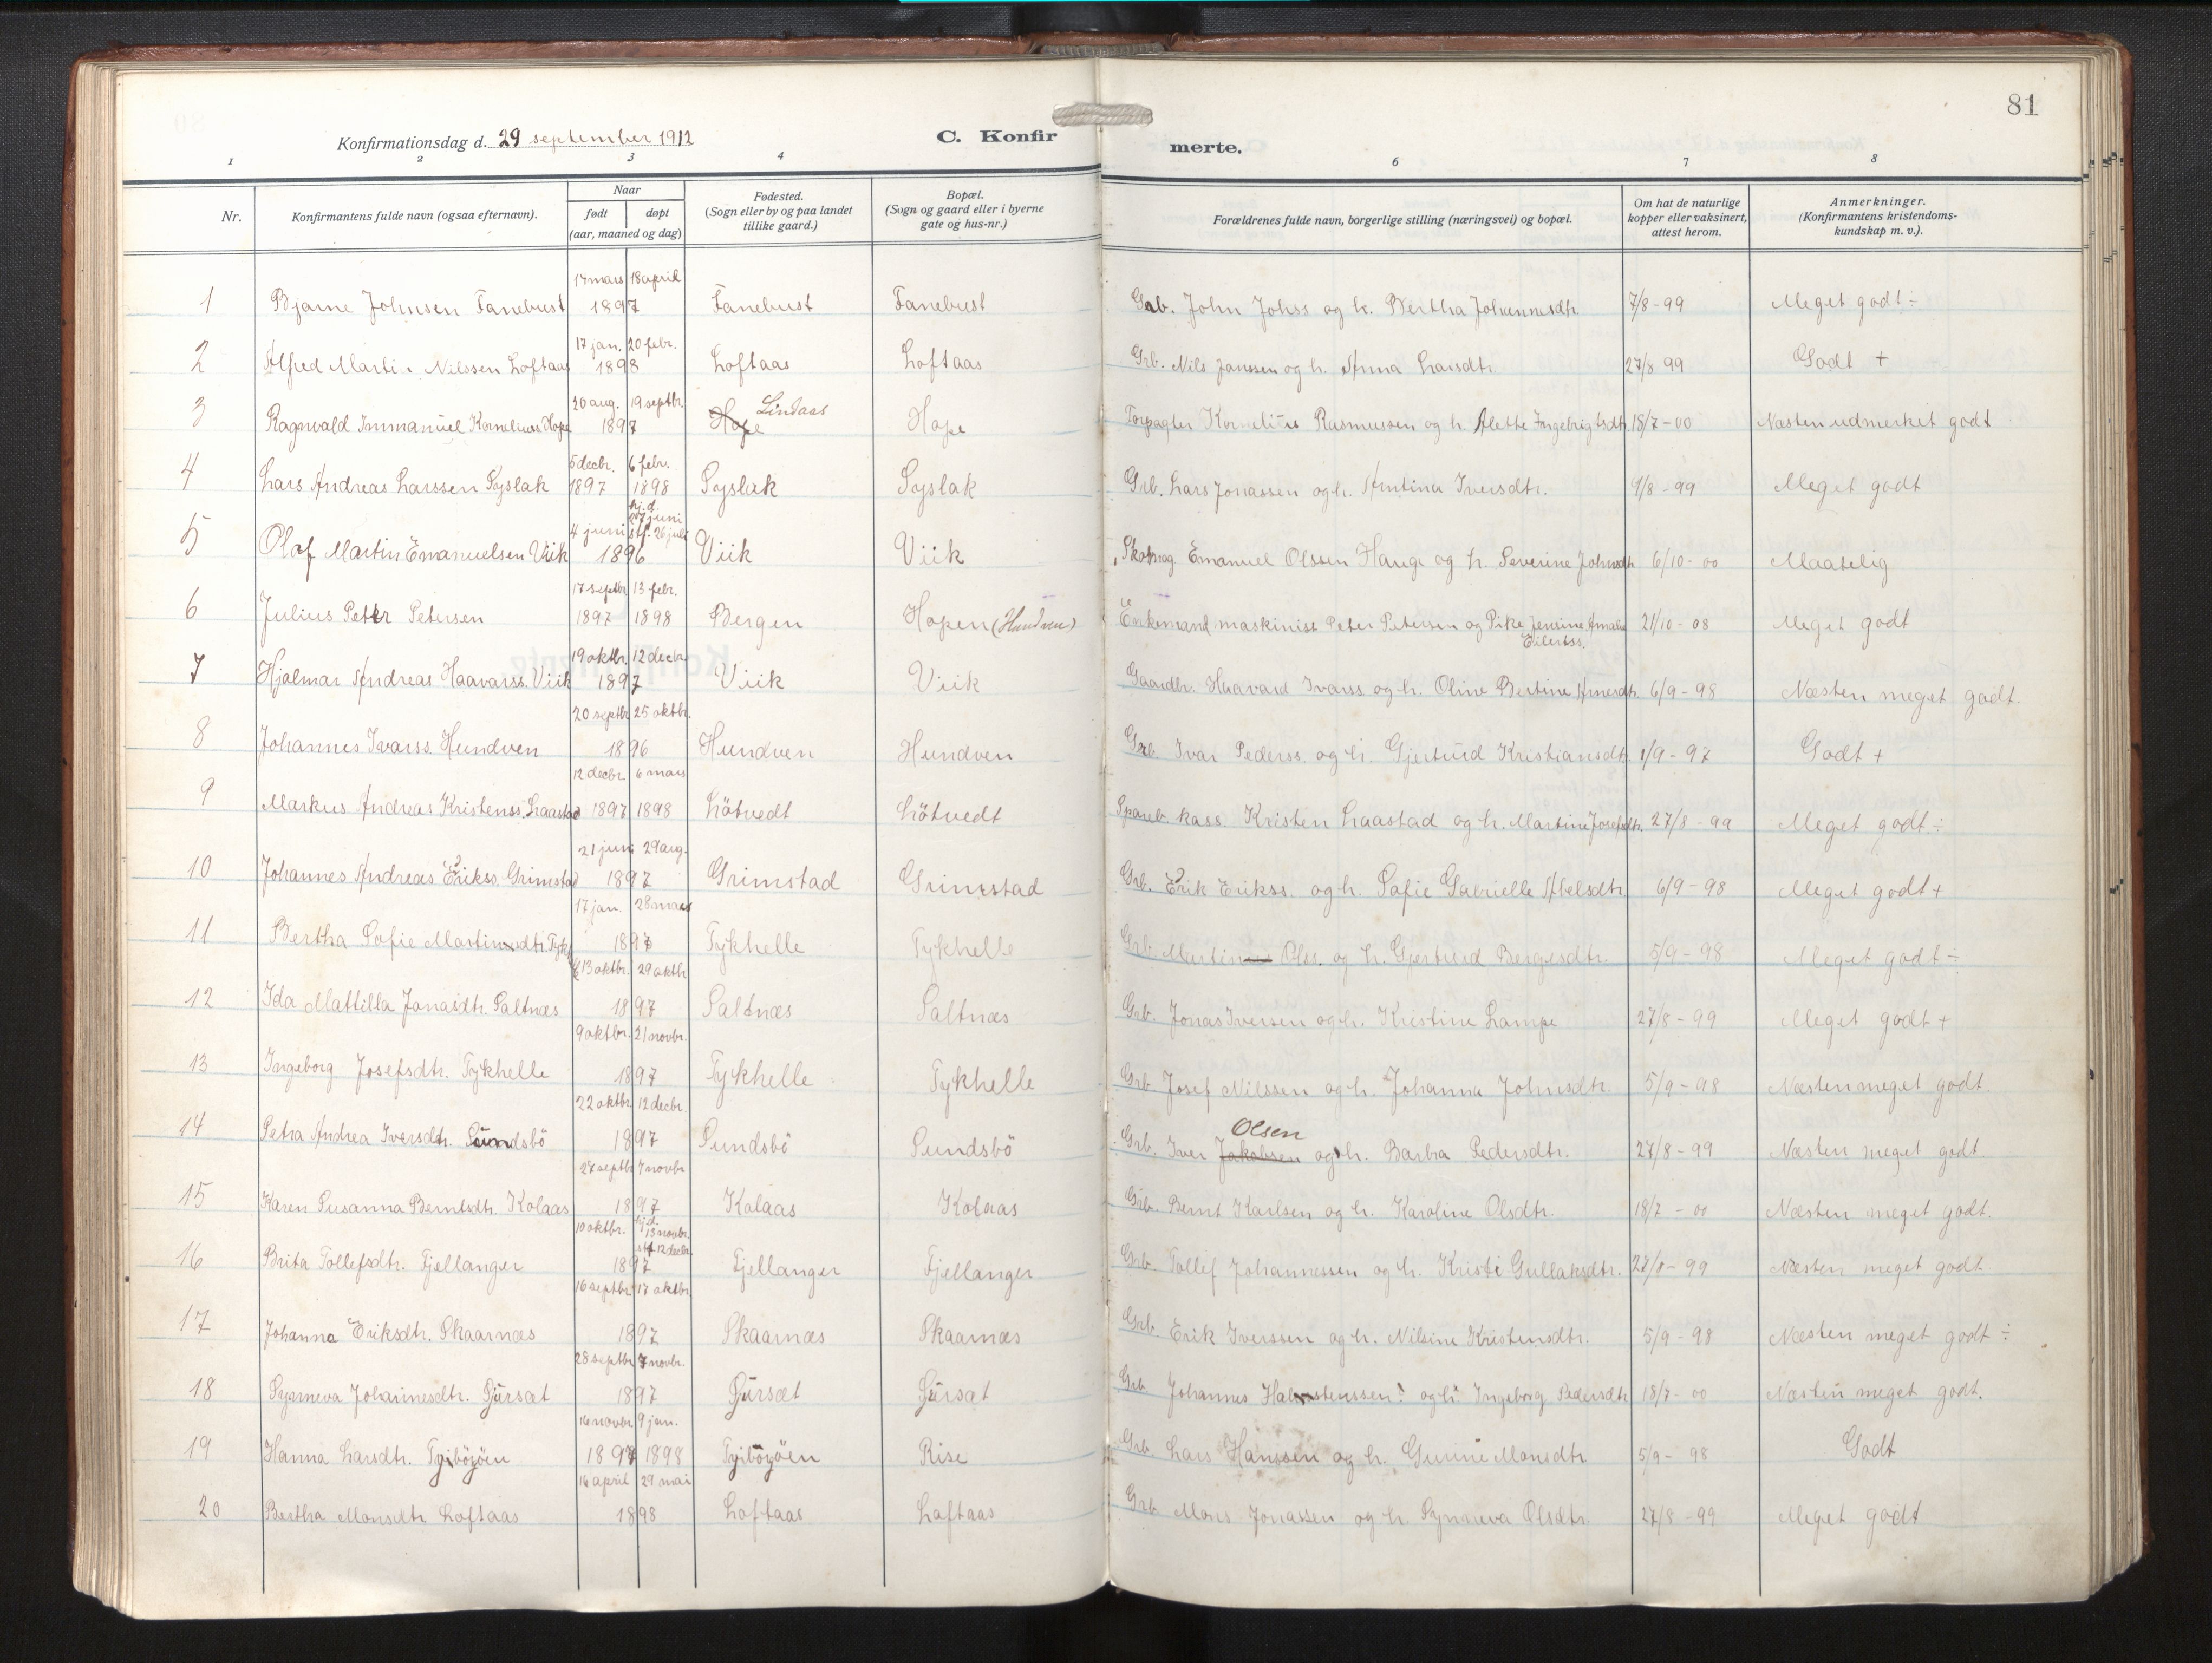 81
Konfirmationsdag d. 29 september 1912
C. Konfirmerte.
1 2 3 4 6 7 8
Nr. Konfirmantens fulde navn (ogsaa efternavn). Naar født døpt (aar, maaned og dag) Fødested. (Sogn eller by og paa landet tillike gaard.) Bopæl. (Sogn og gaard eller i byerne gate og hus-nr.) Forældrenes fulde navn, borgerlige stilling (næringsvei) og bopæl. Om hat de naturlige kopper eller vaksinert, attest herom. Anmerkninger. (Konfirmantens kristendomskundskap m. v.).
1 Bjarne Johnsen Fanebust 17 mars 18 april 1897 Fanebust Fanebust Grb. John Johss og h. Bertha Johannesdtr. 7/8-99 Meget godt ÷
2 Alfred Martin Nilssen Loftaas 17 jan. 20 febr. 1898 Loftaas Loftaas Grb. Nils Janssen og h. Anna Larsdtr. 27/8 99 Godt +
3 Ragnvald Immanuel Kornelius Hope 20 aug. 19 septbr. 1897 Hope Lindaas Hope Forpagter Kornelius Rasmussen og h. Alette Ingebrigtsdtr. 18/7-00 Næsten udmerket godt
4 Lars Andreas Larssen Syslak 5 decbr. 1897 6 febr. 1898 Syslak Syslak Grb. Lars Jonassen og h. Antina Iversdtr. 9/8-99 Meget godt
5 Olaf Martin Emanuelsen Viik 4 juni hj.d. 7 juni stf. 26 juli 1896 Viik Viik Skomag. Emanuel Olssen Hauge og h. Severine Johnsdtr. 6/10-00 Maatelig
6 Julius Peter Petersen 17 septbr. 1897 13 febr. 1898 Bergen Hopen (Hundven) Enkemand maskinist Peter Petersen og Pike Jensine Amalie Eilertss. 21/10-08 Meget godt
7 Hjalmar Andreas Haavarss. Viik 19 oktbr. 12 decbr. 1897 Viik Viik Gaardbr. Haavard Ivarss. og h. Oline Bertine Arnesdtr. 6/9-98 Næsten meget godt.
8 Johannes Ivarss. Hundven 20 septbr. 25 oktbr. 1896 Hundven Hundven Grb. Ivar Pederss. og h. Gjertrud Kristiansdtr. 1/9-97 Godt +
9 Markus Andreas Kristenss. Laastad 12 decbr. 1897 6 mars 1898 Løtvedt Løtvedt Spareb. kass. Kristen Laastad og h. Martine Josefsdtr. 27/8-99 Meget godt ÷
10 Johannes Andreas Erikss. Grimstad 21 juni 29 aug. 1897 Grimstad Grimstad Grb. Erik Erikss. og h. Sofie Gabrielle Abelsdtr. 6/9-98 Meget godt +
11 Bertha Sofie Martinsdtr. Tykh 17 jan. 28 mars 1897 Tykhelle Tykhelle Grb. Martin Olss. og h. Gjertrud Børgesdtr. 5/9-98 Meget godt ÷
12 Ida Mattilla Jonasdtr. Saltnæs 13 oktbr. 29 oktbr. 1897 Saltnæs Saltnæs Grb. Jonas Iversen og h. Kristine Lampe 27/8-99 Meget godt +
13 Ingeborg Josefsdtr. Tykhelle 9 oktbr. 21 novbr. 1897 Tykhelle Tykhelle Grb. Josef Nilssen og h. Johanna Johnsdtr. 5/9-98 Næsten meget godt.
14 Petra Andrea Iversdtr. Sundsbö 22 oktbr. 12 decbr. 1897 Sundsbö Sundsbö Grb. Iver Jakobsen Olsen og h. Barbra Pedersdtr. 27/8-99 Næsten meget godt
15 Karen Susanna Berntsdtr. Kolaas 27 septbr. 7 novbr. 1897 Kolaas Kolaas Grb. Bernt Karlsen og h. Karoline Olsdtr. 18/7-00 Næsten meget godt.
16 Brita Tollefsdtr. Fjellanger 10 oktbr. hj.d. 13 novbr. stf. 12 decbr. 1897 Fjellanger Fjellanger Grb. Tollef Johannessen og h. Kristi Gullaksdtr. 27/8-99 Næsten meget godt
17 Johanna Eriksdtr. Skaarnæs 16 septbr. 17 oktbr. 1897 Skaarnæs Skaarnæs Grb. Erik Iverssen og h. Nilsine Kristensdtr. 5/9-98 Næsten meget godt ÷
18 Synneva Johannesdtr. Gjürsæt 28 septbr. 7 novbr. 1897 Gjürsæt Gjürsæt Grb Johannes Halstenssen og h. Ingeborg Pedersdtr. 18/7-00 Næsten meget godt.
19 Hanna Larsdtr. 16 novbr. 1897 9 jan. 1898 Rise Grb. Lars Hanssen og h. Gurine Monsdtr. 5/9-98 Godt
20 Bertha Monsdtr. Loftaas 16 april 29 mai 1898 Loftaas Loftaas Grb Mons Jonassen og h. Synneva Olsdtr. 27/8-99 Meget godt